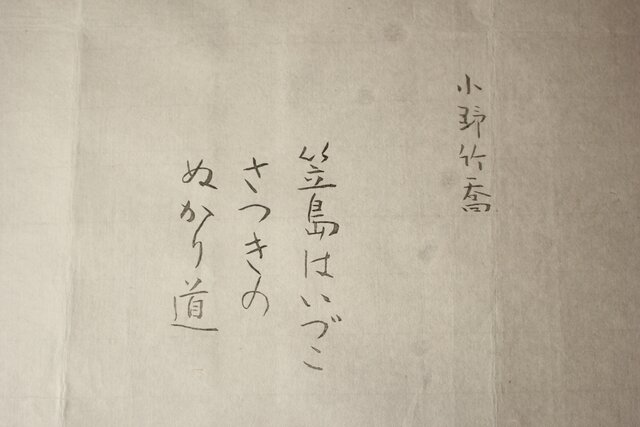 小野竹喬
笠島はいづこ
さつきの
ぬかり道